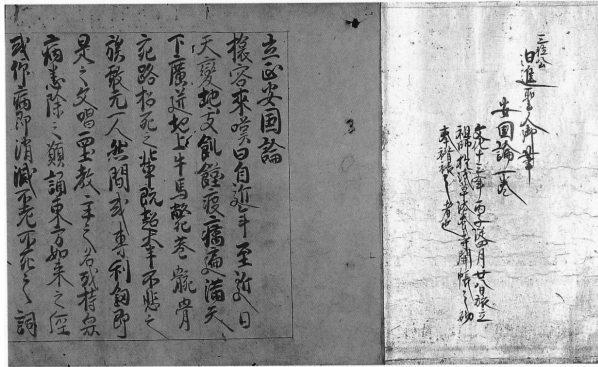 三位公
日進聖人御筆
安国論一巻
文化十三年丙子四月廿八日旅立
祖師於浅草 寺開帳之砌
者也
立正安国論
旅客來嘆曰自近年至近日
天變地夭飢饉疫癘遍滿天
下廣迸地上牛馬斃巷骸骨
充路招死之輩既超大半不悲之
族敢无一人然間或専利劔即
是之文唱西土教主之名或持衆
病悉除之願誦東方如来之經
或仰病即消滅不老不死之詞